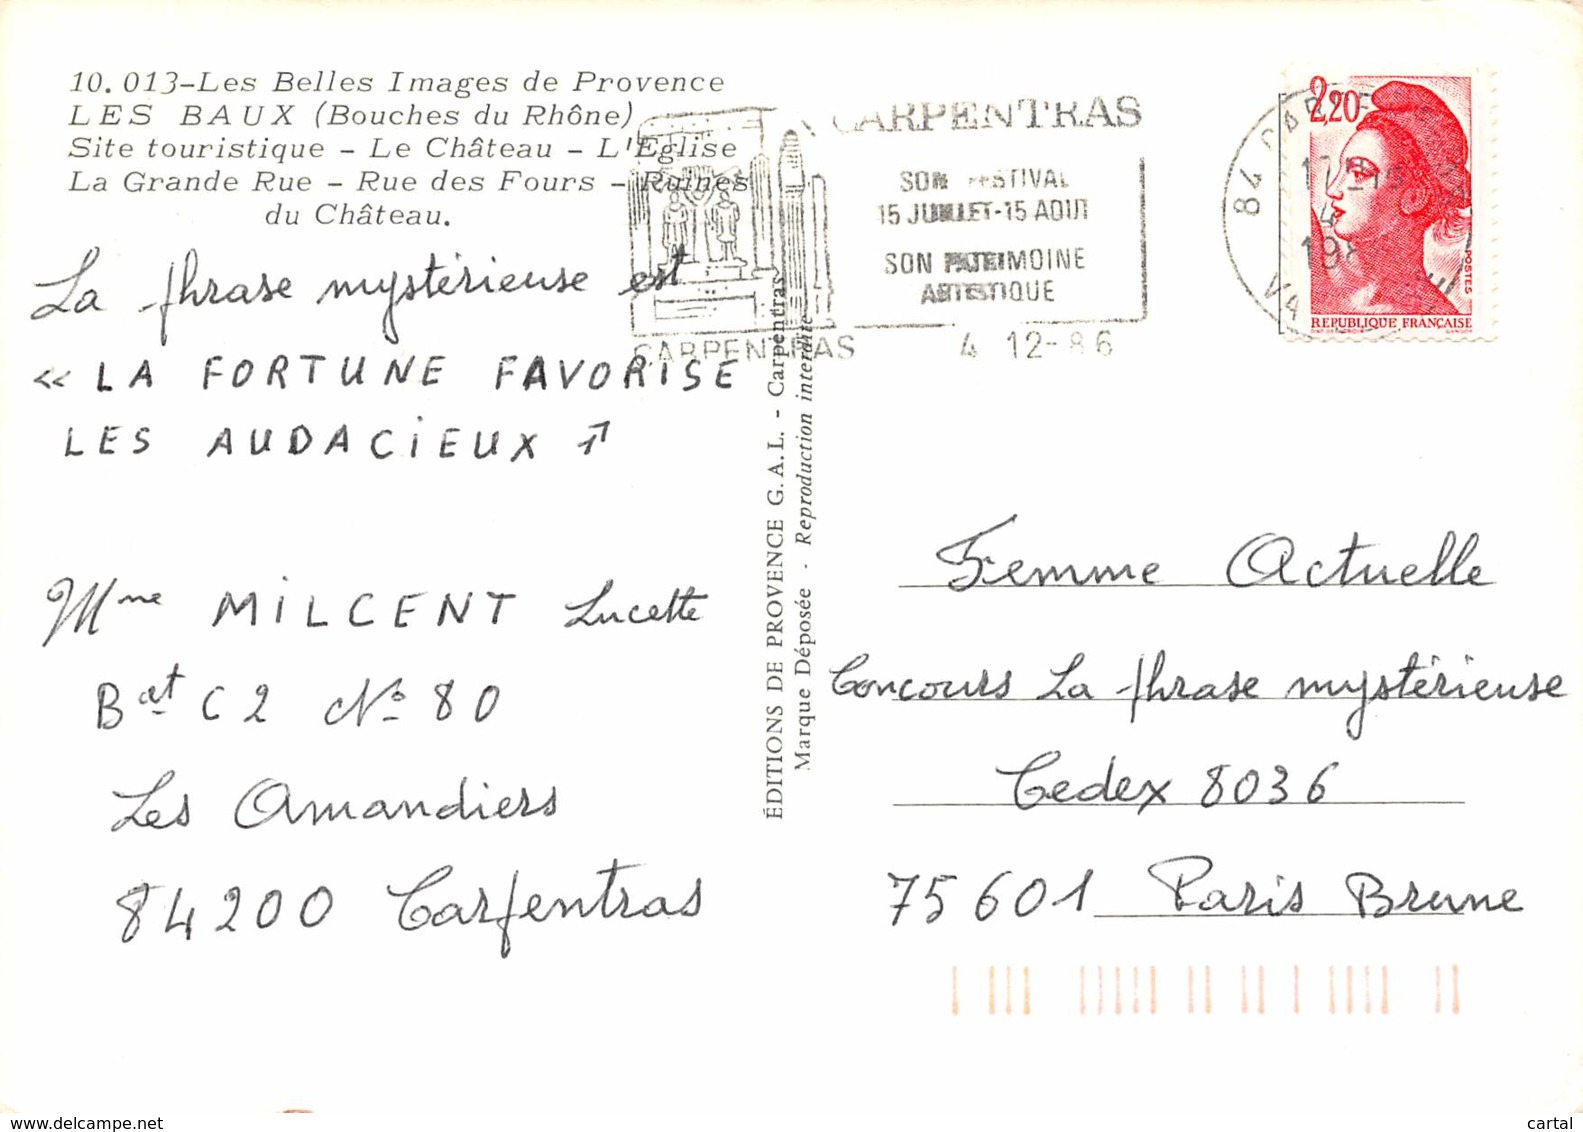 10.013-Les Belles Images de Provence
LES BAUX (Bouches du Rhône)
Site touristique - Le Château - L'Eglise
La Grande Rue - Rue des Fours - Ruines
du Château.
La phrase mystérieuse est
« LA FORTUNE FAVORISE
LES AUDACIEUX »
Mme MILCENT Lucette
Bat C2 No 80
Les Amandiers
84200 Carpentras
ÉDITIONS DE PROVENCE G.A.L. - Carpentras
Marque Déposée - Reproduction interdite
CARPENTRAS
SON FESTIVAL
15 JUILLET-15 AOUT
SON PATRIMOINE
ARTISTIQUE
CARPENTRAS 4 12-86
2,20
POSTES
REPUBLIQUE FRANÇAISE
Femme Actuelle
Concours La phrase mystérieuse
Cedex 8036
75601 Paris Brune
www.delcampe.net
cartal